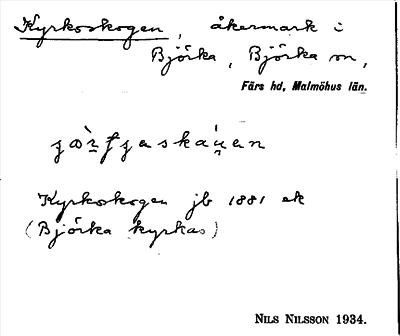 Kyrkoskogen, åkermark i
Björka, Björka sn,
Färs hd, Malmöhus län.
Kyrkoskogen jb 1881 ek
(Björka kyrkas)
NILS NILSSON 1934.